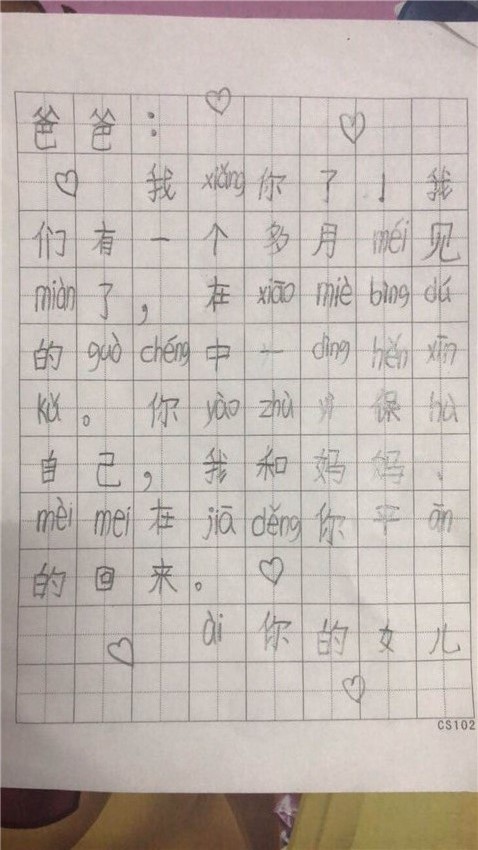 爸爸：
我xiǎng你了！我
们有一个多月méi见
miàn了，在xiāo miè bìng dú
的guò chéng中一dìng hěn xīn
kǔ。你yào zhù 保hù
自己，我和妈妈、
mèi mei在jiā děng你平ān
的回来。
ài你的女儿
CS102